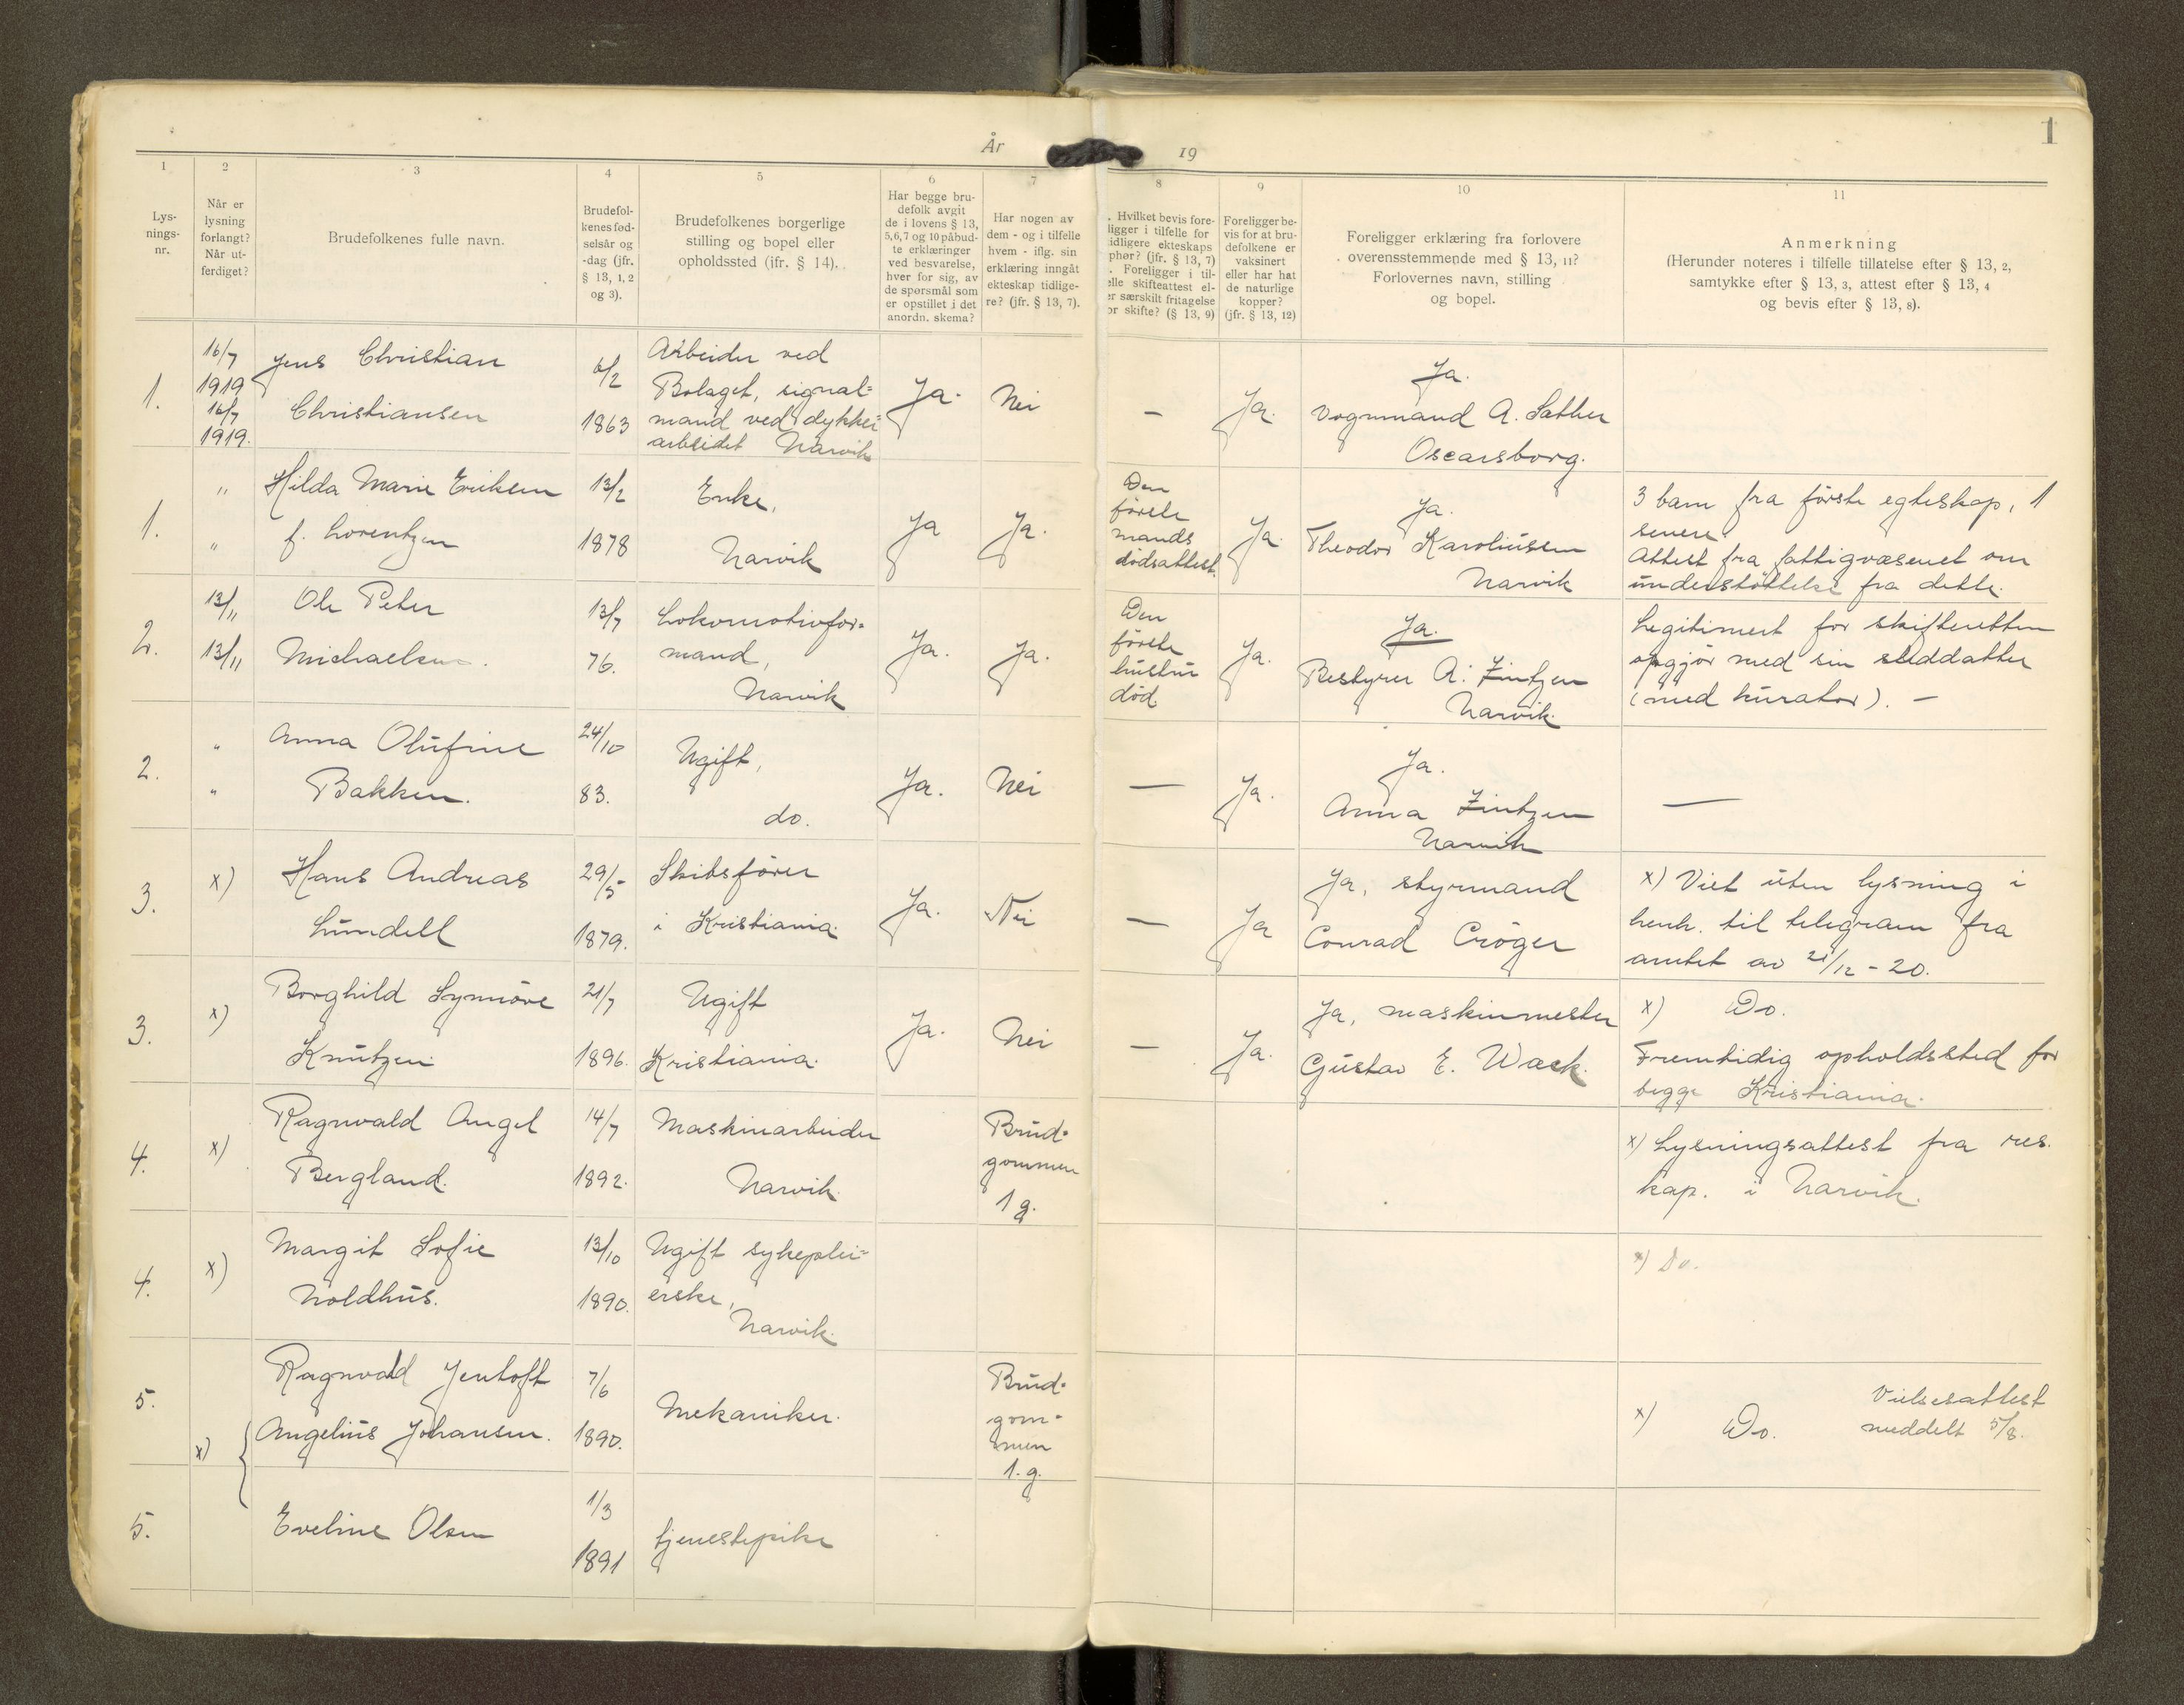 År
19
1
1
2
3
4
5
6
7
8
9
10
11
Lys-
nings-
nr.
Når er
lysning
forlangt?
Når ut-
ferdiget?
Brudefolkenes fulle navn.
Brudefol-
kenes fød-
selsår og
-dag (jfr.
§ 13, 1, 2
og 3).
Brudefolkenes borgerlige
stilling og bopel eller
opholdssted (jfr. § 14).
Har begge bru-
defolk avgit
de i lovens § 13,
5,6,7 og 10 påbud-
te erklæringer
ved besvarelse,
hver for sig, av
de spørsmål som
er opstillet i det
anordn. skema?
Har nogen av
dem - og i tilfelle
hvem - iflg. sin
erklæring inngåt
ekteskap tidlige-
re? (jfr. § 13, 7).
. Hvilket bevis fore-
ligger i tilfelle for
idligere ekteskaps
phør? (jfr. § 13, 7)
. Foreligger i til-
elle skifteattest el-
er særskilt fritagelse
or skifte? (§ 13, 9)
Foreligger be-
vis for at bru-
defolkene er
vaksinert
eller har hat
de naturlige
kopper?
(jfr. § 13, 12)
Foreligger erklæring fra forlovere
overensstemmende med § 13, 11?
Forlovernes navn, stilling
og bopel.
Anmerkning
(Herunder noteres i tilfelle tillatelse efter § 13, 2,
samtykke efter § 13, 3, attest efter § 13, 4
og bevis efter § 13, 8).
1.
16/7
1919
16/7
1919.
Jens Christian
Christiansen
6/2
1863
Arbeider ved
Bolaget, signal=
mand ved dykker=
arbeidet Narvik
Ja.
Nei
—
Ja.
Ja.
Vognmand A. Sæther
Oscarsborg.
1.
"
"
Hilda Marie Eriksen
f. Lorentzen
13/2
1878
Enke,
Narvik
Ja
Ja.
Den
förste
mands
dödsattest.
Ja.
Ja.
Theodor Karoliussen
Narvik
3 barn fra förste egteskap, 1
senere.
Attest fra fattigvæsenet om
understöttelse fra dette.
2.
13/11
13/11
Ole Peter
Michaelsen.
13/7
76.
Lokomotivfor=
mand,
Narvik
Ja.
Ja.
Den
förste
hustru
död.
Ja.
Ja.
Bestyrer A. Zintzen
Narvik.
Legitimert for skifteretten
opgjör med sin steddatter
(med kurator). —
2.
"
"
Anna Olufine
Bakken.
24/10
83.
Ugift,
do.
Ja.
Nei
—
Ja.
Ja.
Anna Zintzen
Narvik
—
3.
x)
Hans Andreas
Lundell
29/5
1879.
Skibsförer
i Kristiania.
Ja.
Nei
—
Ja
Ja, styrmand
Conrad Cröger
x) Viet uten lysning i
henh. til telegram fra
amtet av 21/12 - 20.
3.
x)
Borghild Synnöve
Knutzen.
21/7
1896.
Ugift
Kristiania.
Ja.
Nei
—
Ja.
Ja, maskinmester
Gustav E. Wack.
x) Do.
Fremtidig opholdssted for
begge Kristiania.
4.
x)
Ragnvald Angel
Bergland.
14/7
1892.
Maskinarbeider
Narvik.
Brud=
gommen
1 g.
x) Lysningsattest fra res.
kap. i Narvik.
4.
x)
Margit Sofie
Noldhus.
13/10
1890.
Ugift sykeplei=
erske,
Narvik.
x) Do.
5.
x)
Ragnvald Jentoft
Angelius Johansen.
7/6
1890.
Mekaniker.
Brud=
gom=
men
1. g.
x) Do.
Vielsesattest
meddelt 5/8.
5.
Eveline Olsen
1/3
1891
tjenestepike